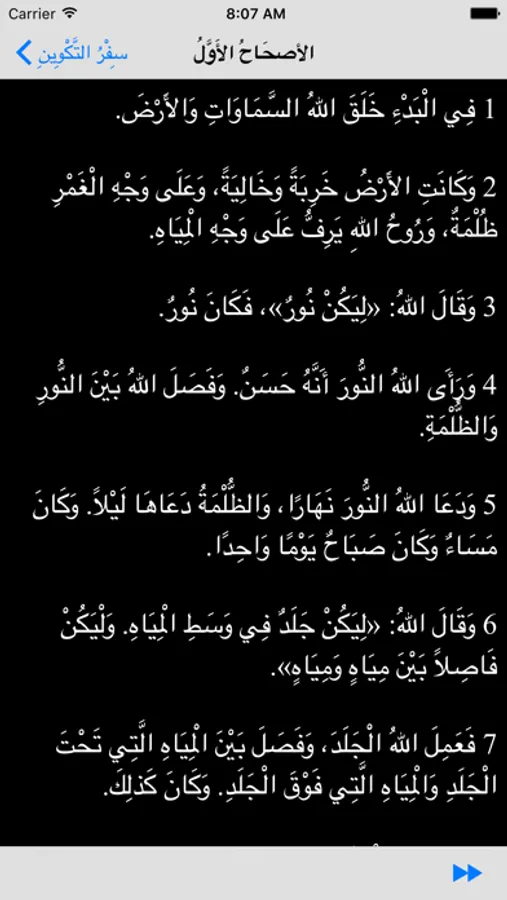 Carrier 8:07 AM
سفْرُ التَّكْوِينِ الأصحَاحُ الأَوَّلُ
1 فِي الْبَدْءِ خَلَقَ اللهُ السَّمَاوَاتِ وَالأَرْضَ.
2 وَكَانَتِ الأَرْضُ خَرِبَةً وَخَالِيَةً، وَعَلَى وَجْهِ الْغَمْرِ
ظُلْمَةٌ، وَرُوحُ اللهِ يَرِفُّ عَلَى وَجْهِ الْمِيَاهِ.
3 وَقَالَ اللهُ: «لِيَكُنْ نُورٌ»، فَكَانَ نُورٌ.
4 وَرَأَى اللهُ النُّورَ أَنَّهُ حَسَنٌ. وَفَصَلَ اللهُ بَيْنَ النُّورِ
وَالظُّلْمَةِ.
5 وَدَعَا اللهُ النُّورَ نَهَارًا، وَالظُّلْمَةُ دَعَاهَا لَيْلاً. وَكَانَ
مَسَاءٌ وَكَانَ صَبَاحٌ يَوْمًا وَاحِدًا.
6 وَقَالَ اللهُ: «لِيَكُنْ جَلَدٌ فِي وَسَطِ الْمِيَاهِ. وَلْيَكُنْ
فَاصِلاً بَيْنَ مِيَاهٍ وَمِيَاهٍ».
7 فَعَمِلَ اللهُ الْجَلَدَ، وَفَصَلَ بَيْنَ الْمِيَاهِ الَّتِي تَحْتَ
الْجَلَدِ وَالْمِيَاهِ الَّتِي فَوْقَ الْجَلَدِ. وَكَانَ كَذلِكَ.